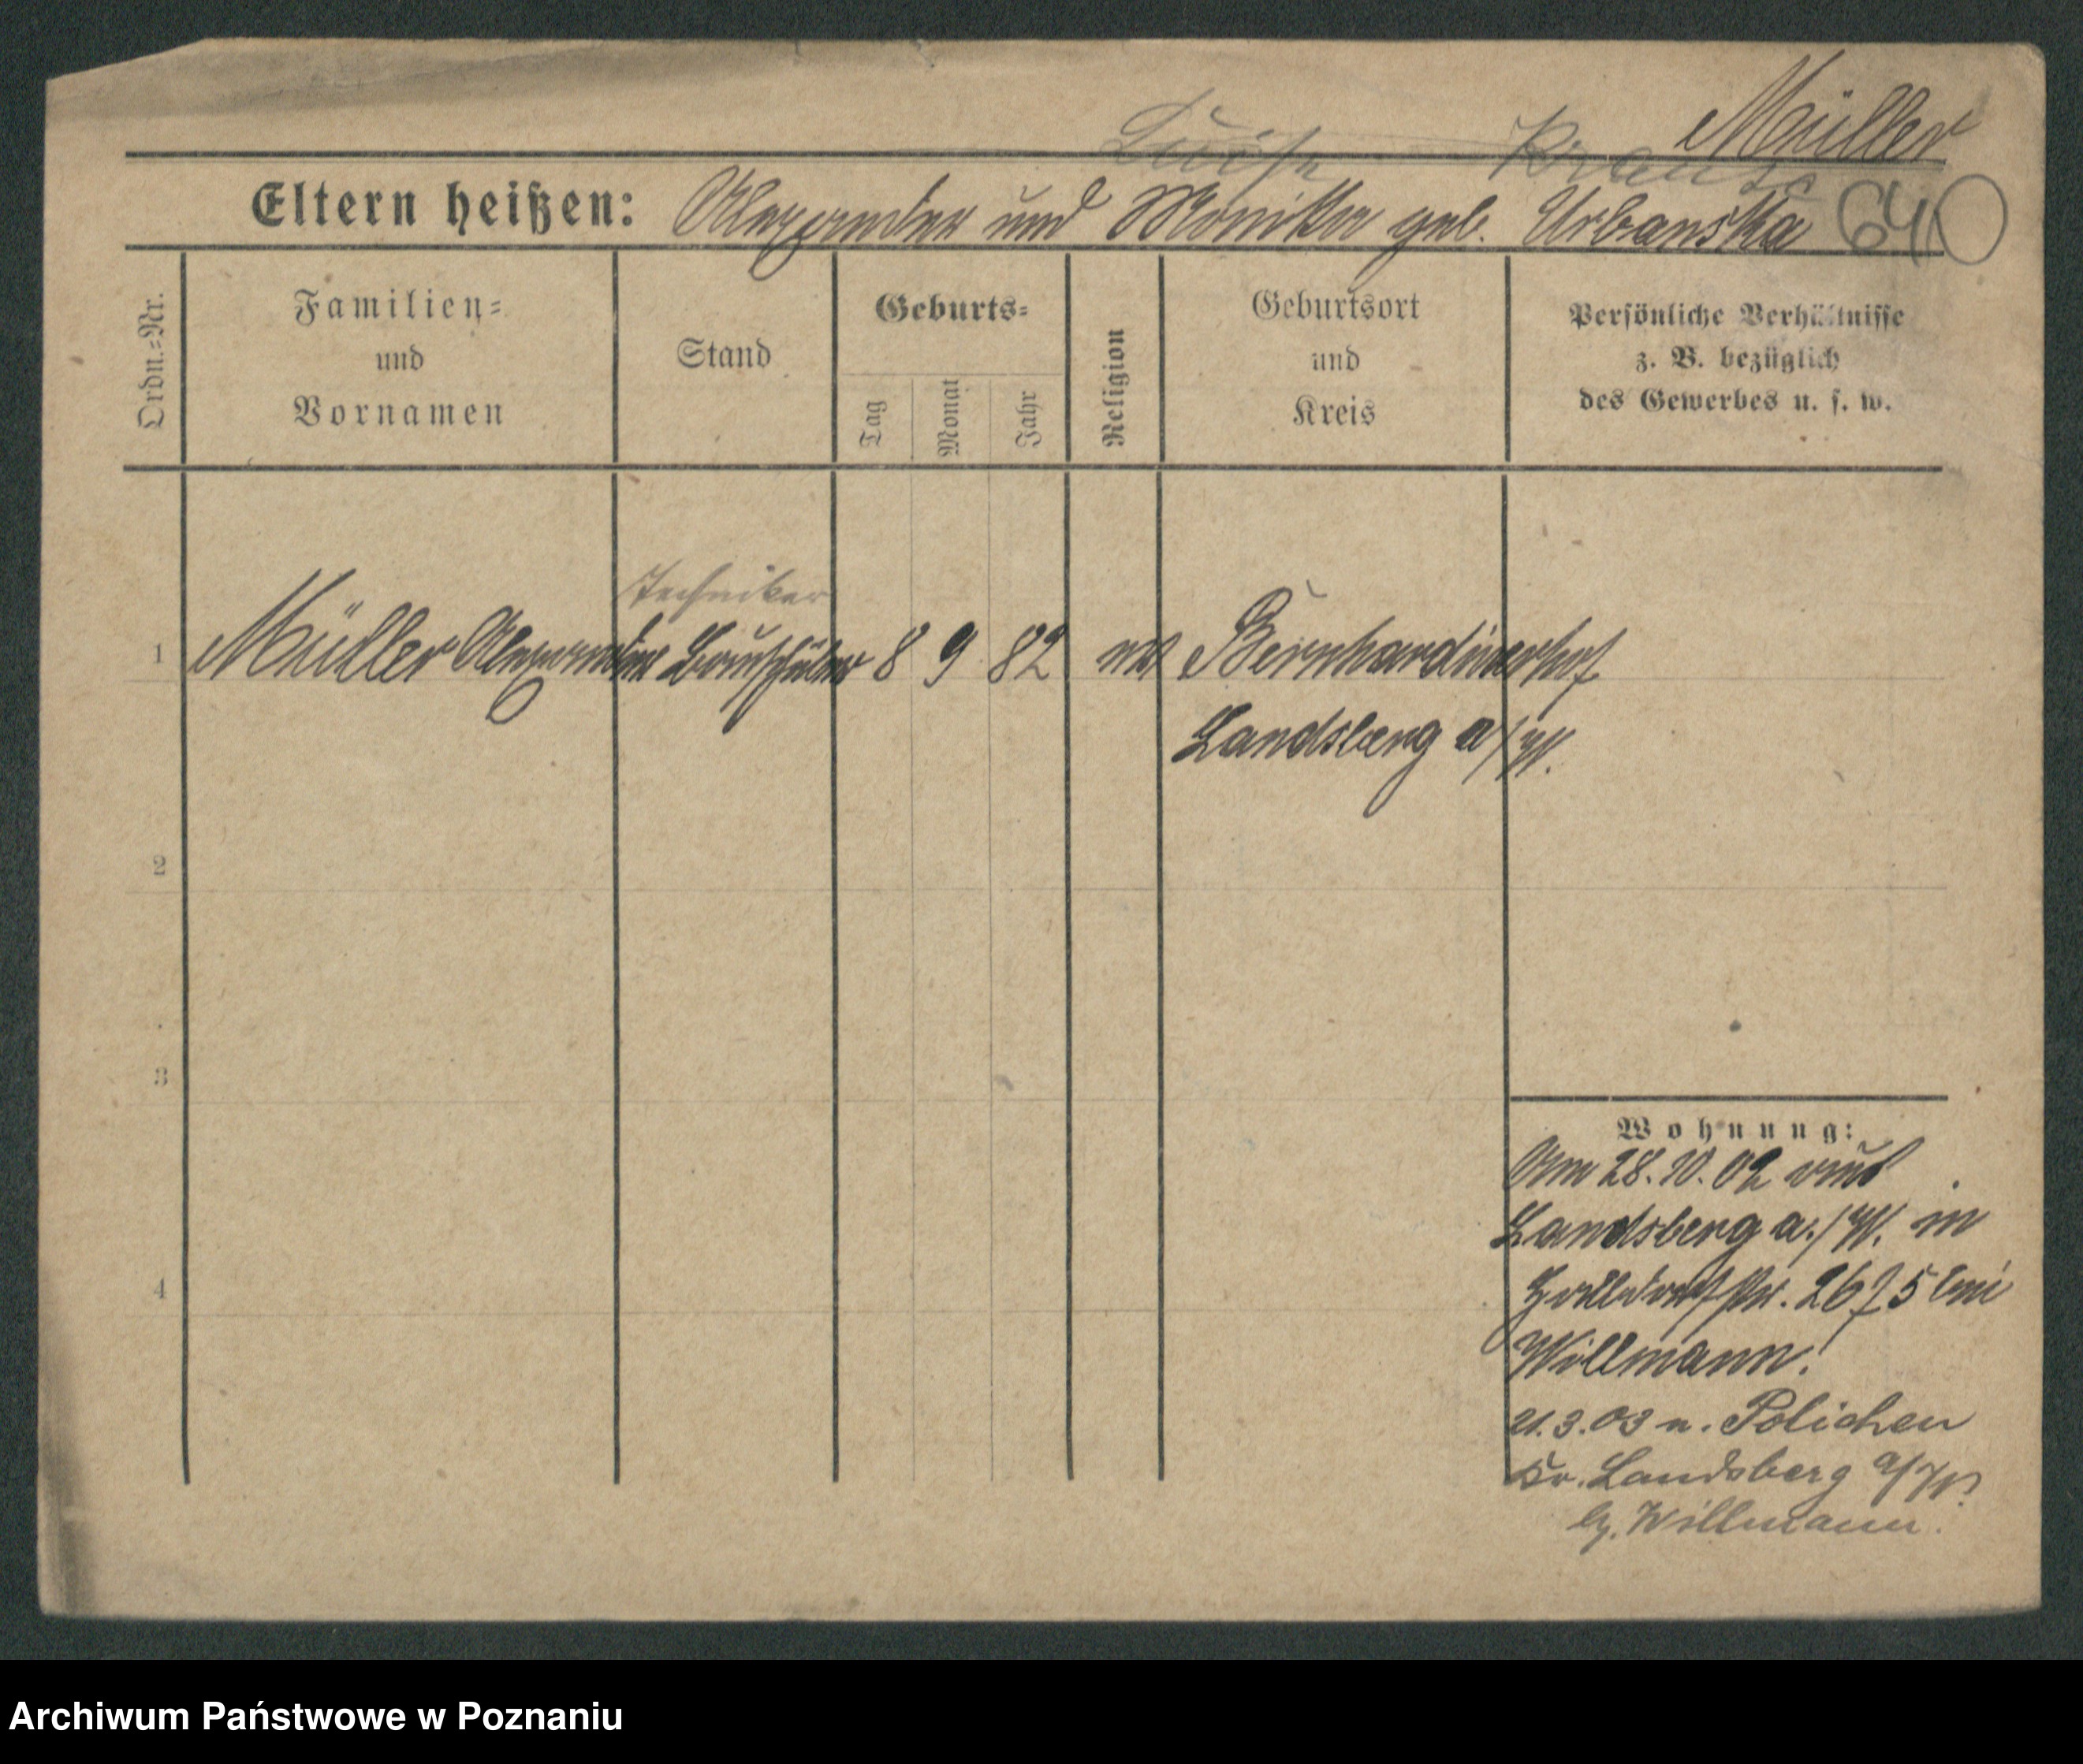 Müller
Luise Krause
Eltern heißen: Alexander und Monika geb. Urbanska 640
Ordn.=Nr.
Familien=
und
Vornamen
Stand
Geburts=
Tag
Monat
Jahr
Religion
Geburtsort
und
Kreis
Persönliche Verhältnisse
z. B. bezüglich
des Gewerbes u. s. w.
Techniker
1 Müller Alexander Bauschüler 8 9 82 Bernhardinerhof
Landsberg a/W.
2
3
4
Wohnung:
Am 28.10.02 aus
Landsberg a./W. in
2675 bei
Willmann.
21.3.03 n. Polichen
Kr. Landsberg a/W.
Willmann.
Archiwum Państwowe w Poznaniu